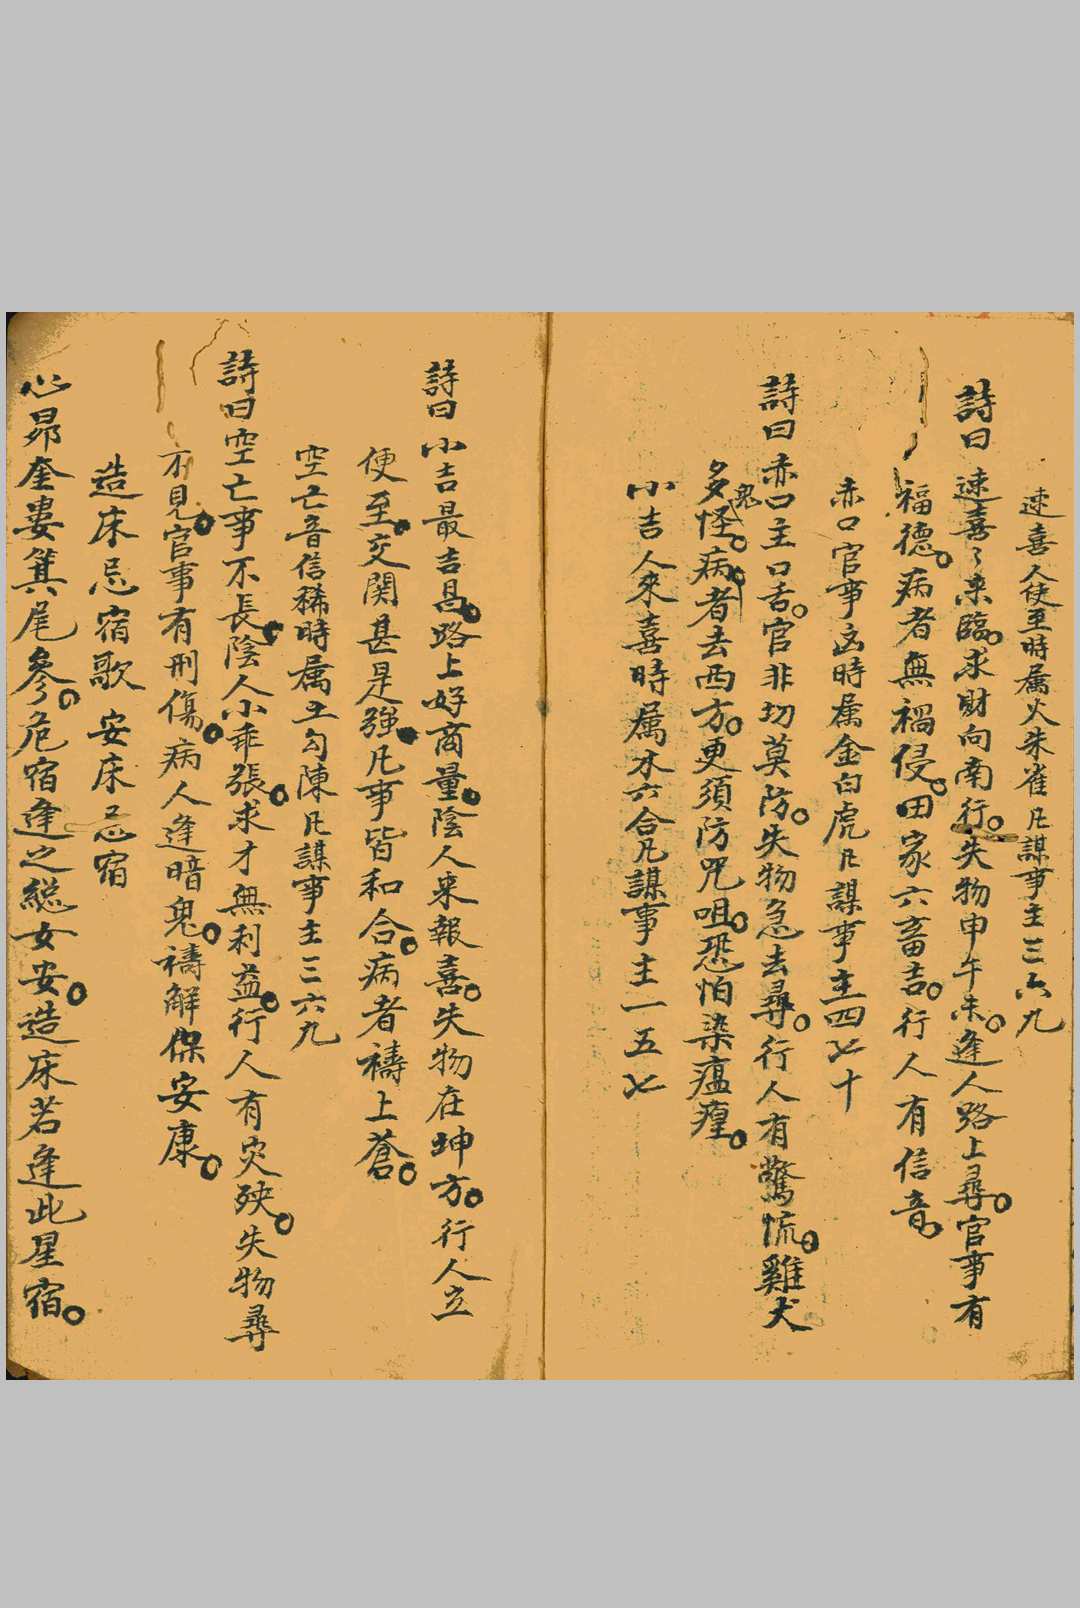 速喜人使至時属火朱雀凡謀事主三六九
詩曰速喜〻来臨。求財向南行。失物申午未。逢人路上尋。官事有
福德。病者無禍侵。田家六畜吉。行人有信音。
赤口官事凶時属金白虎凡謀事主四七十
詩曰赤口主口舌。官非切莫防。失物急去尋。行人有驚慌。雞犬
多怪。病者去西方。更須防咒咀。恐怕染瘟㾮。
鬼
小吉人來喜時属水六合凡謀事主一五七
詩曰小吉最吉昌。路上好商量。陰人来報喜。失物在坤方。行人立
便至。交関甚是強。凡事皆和合。病者禱上蒼。
空亡音信稀時属土勾陳凡謀事主三六九
詩曰空亡事不長。陰人小乖張。求才無利益。行人有災殃。失物尋
不見。官事有刑傷。病人逢暗鬼。禱解保安康。
造床忌宿歌 安床忌宿
心昴奎婁箕尾參。危宿逢之総女安。造床若逢此星宿。